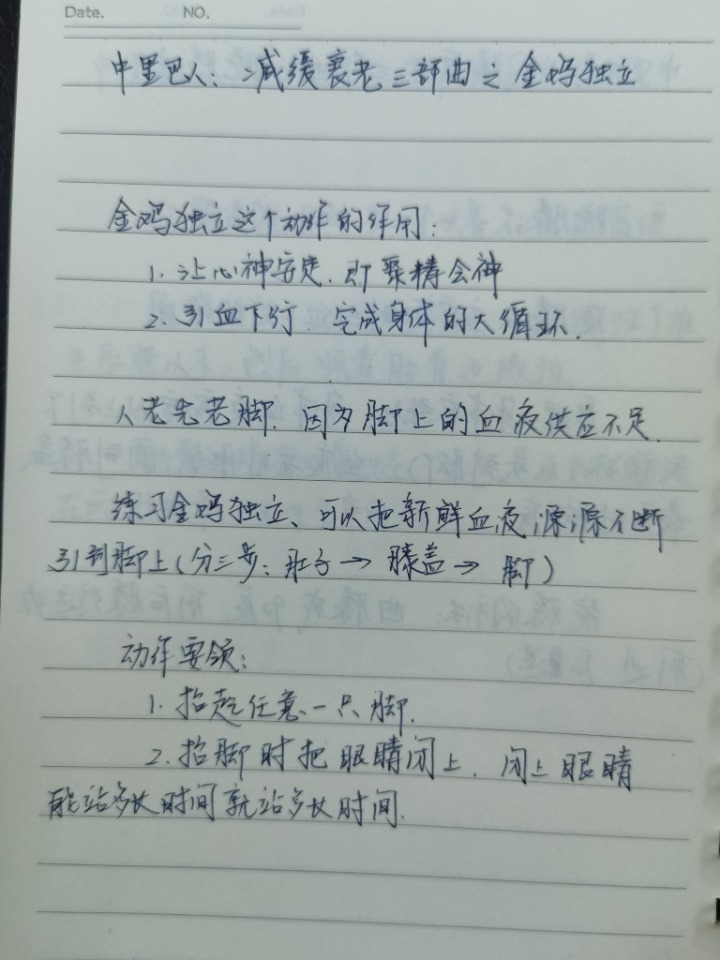 Date. NO.
中里巴人：减缓衰老三部曲之金鸡独立
金鸡独立这个动作的作用：
1. 让心神安定，即聚精会神
2. 引血下行，完成身体的大循环.
人老先老脚. 因为脚上的血液供应不足.
练习金鸡独立、可以把新鲜血液源源不断
引到脚上（分三步：肚子→膝盖→脚）
动作要领：
1. 抬起任意一只脚.
2. 抬脚时把眼睛闭上. 闭上眼睛
能站多长时间就站多长时间.